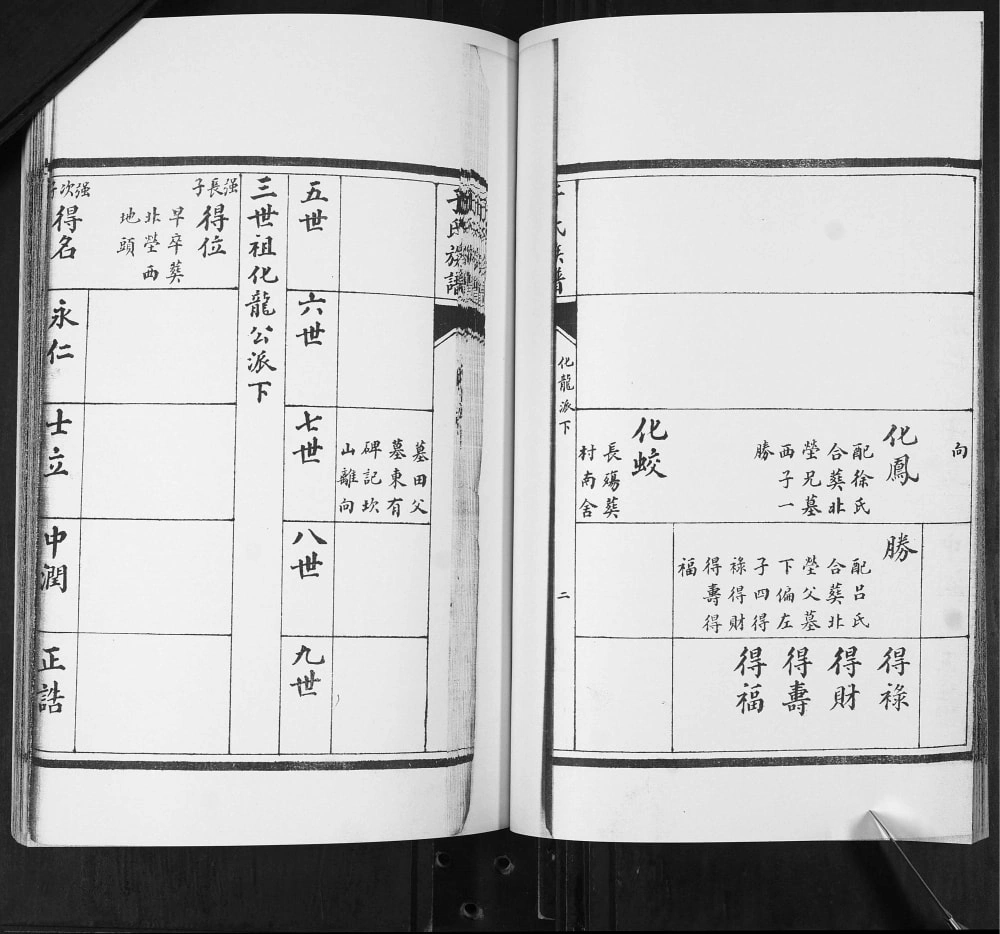 向
化鳳
配徐氏
合葬北
塋兄墓
西子一
勝
化蛟
長殤葬
村南舍
勝
配呂氏
合葬北
塋父墓
下偏左
子四得
祿得財
得壽得
福
得祿
得財
得壽
得福
氏族譜
化龍派下
二
氏族譜
墓田父
墓東有
碑記坎
山離向
五世
六世
七世
八世
九世
三世祖化龍公派下
强長子
得位
早卒葬
北塋西
地頭
强次子
得名
永仁
士立
中潤
正誥